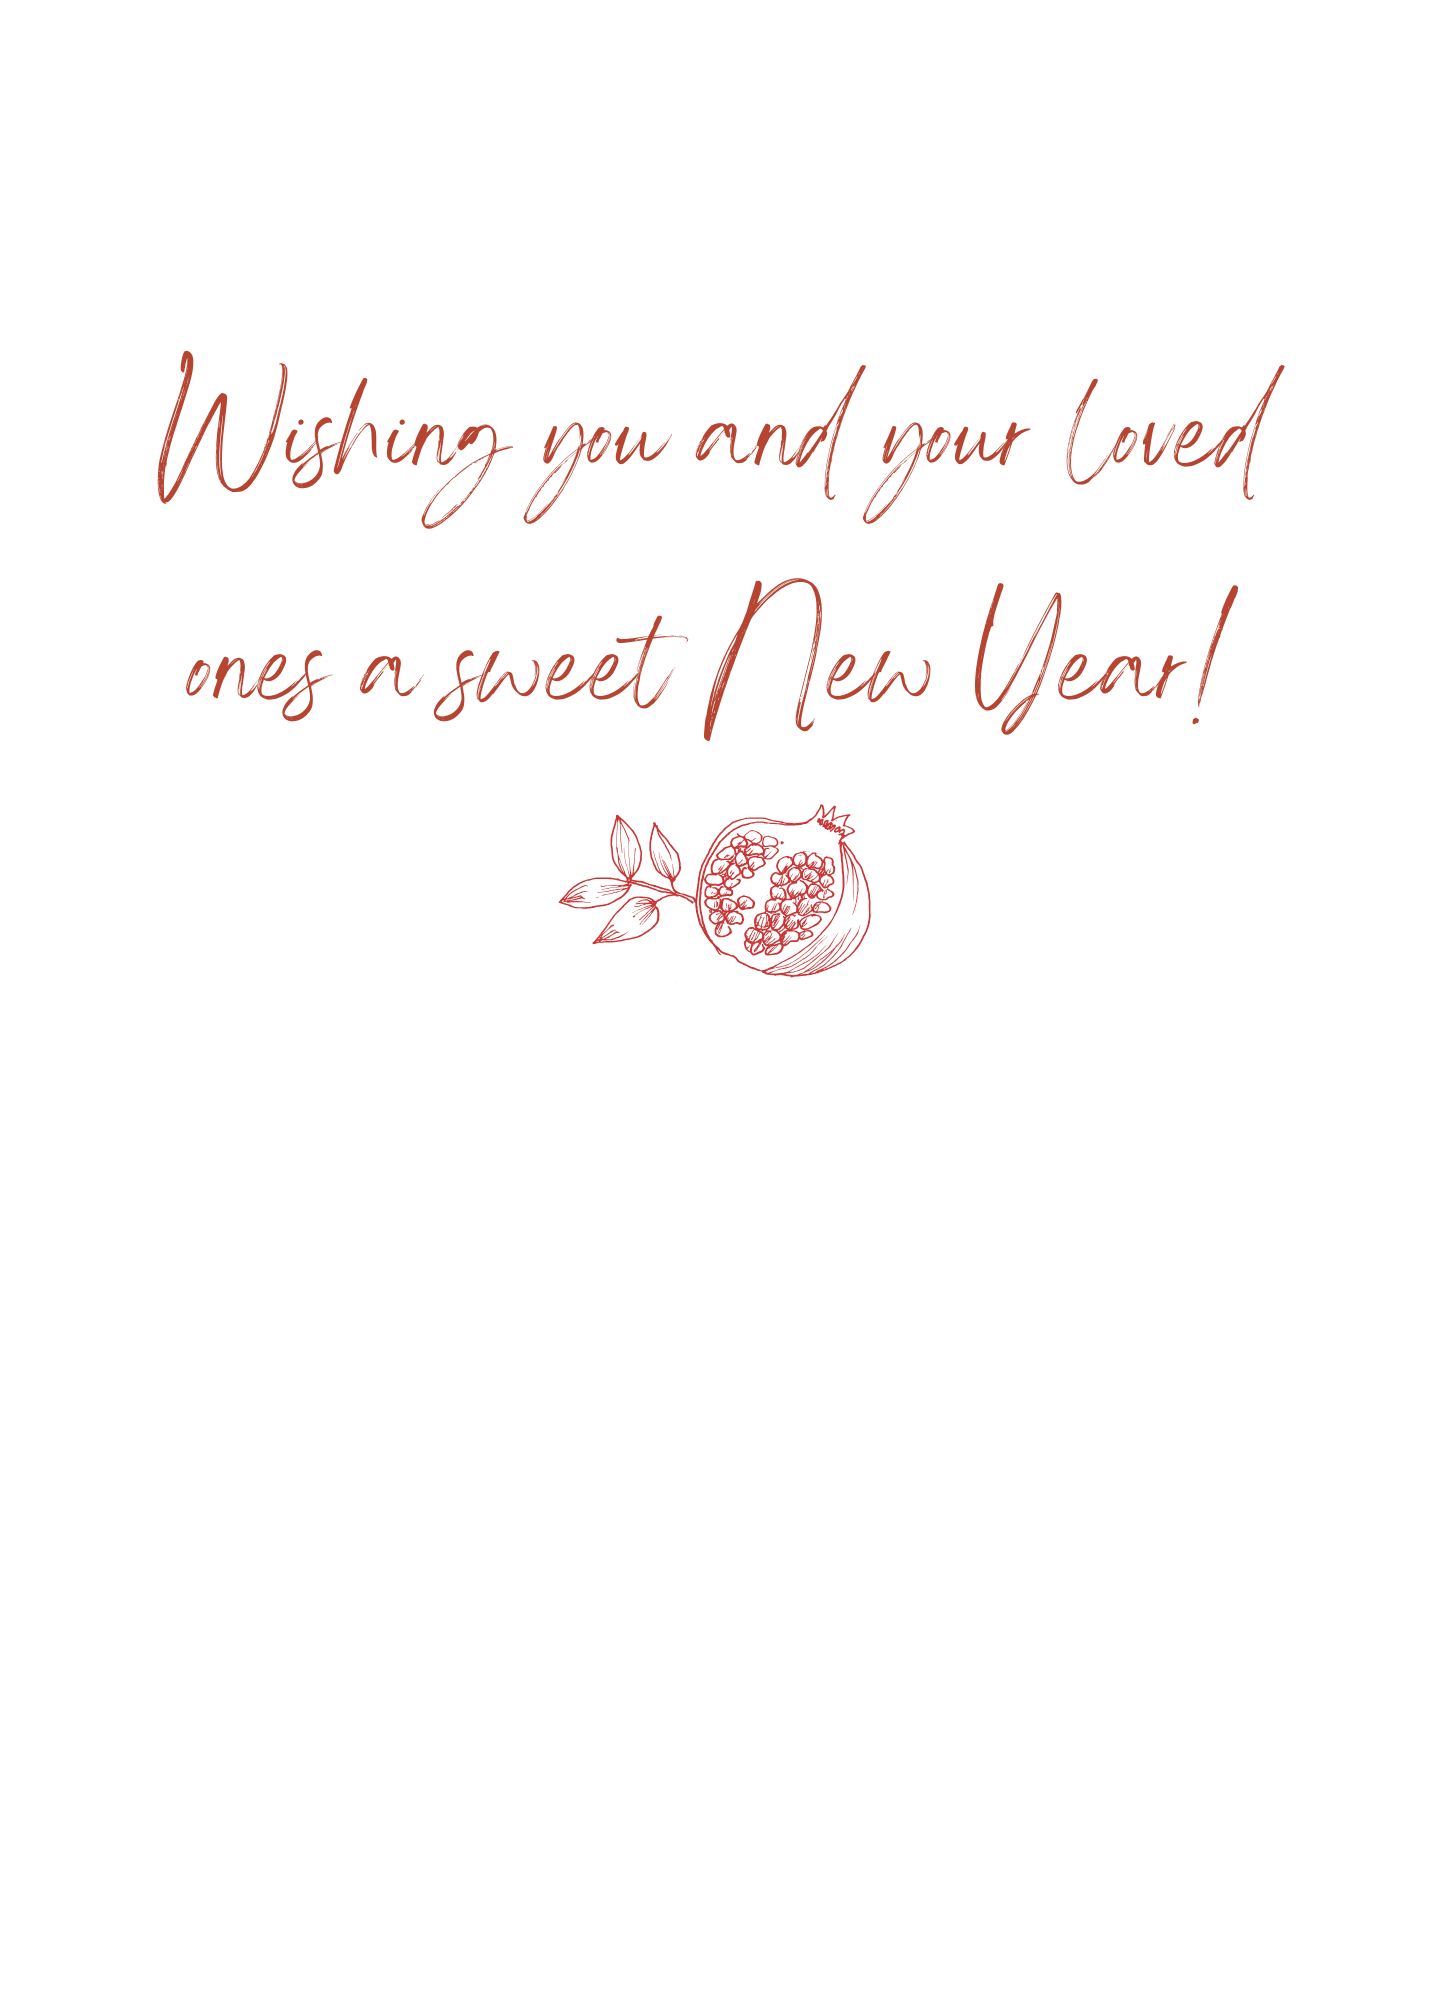 Wishing you and your loved
ones a sweet New Year!